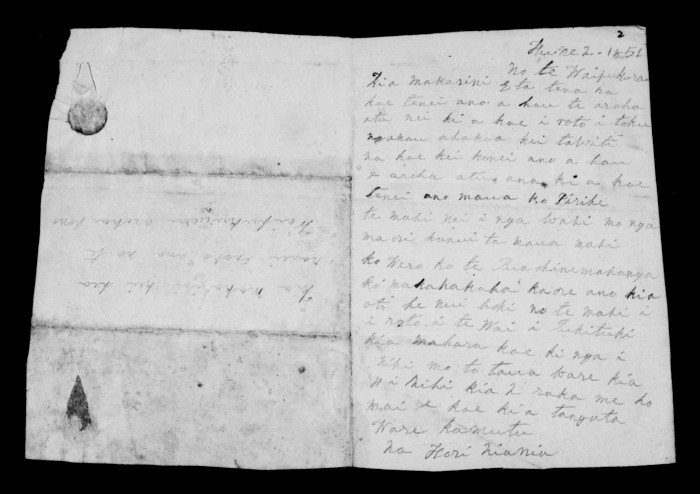 2
Hune 2 - 1851
No te Waipukurau
Kia makarini E ta tena ra
koe tenei ano a hau te aroha
atu nei ki a koe i roto i toku
ngakau ahakoa kei tawiti
na koe kei konei ano a hau
e aroha atu ana ki a koe
tenei ano maua ko
te mahi nei i nga wahi mo nga
maori tonui ta maua mahi
ko Wero ko te
ko kaore ano kia
oti he nui hoki no te mahi i
i roto i te Wai i Tukituki
kia mahara koe ki nga i
Nihi mo to taua ware kia
Wi Nihi kia 2 raka me ho
mai e koe ki a tangata
Ware ka mutu
Na Hori Niania
Kia ki
ano no te
Waipukurau aroha